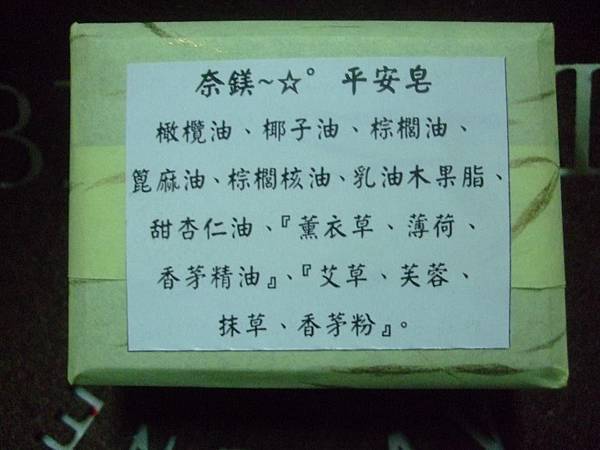 奈鎂~☆° 平安皂
橄欖油、椰子油、棕櫚油、
篦麻油、棕櫚核油、乳油木果脂、
甜杏仁油、『薰衣草、薄荷、
香茅精油』、『艾草、芙蓉、
抹草、香茅粉』。